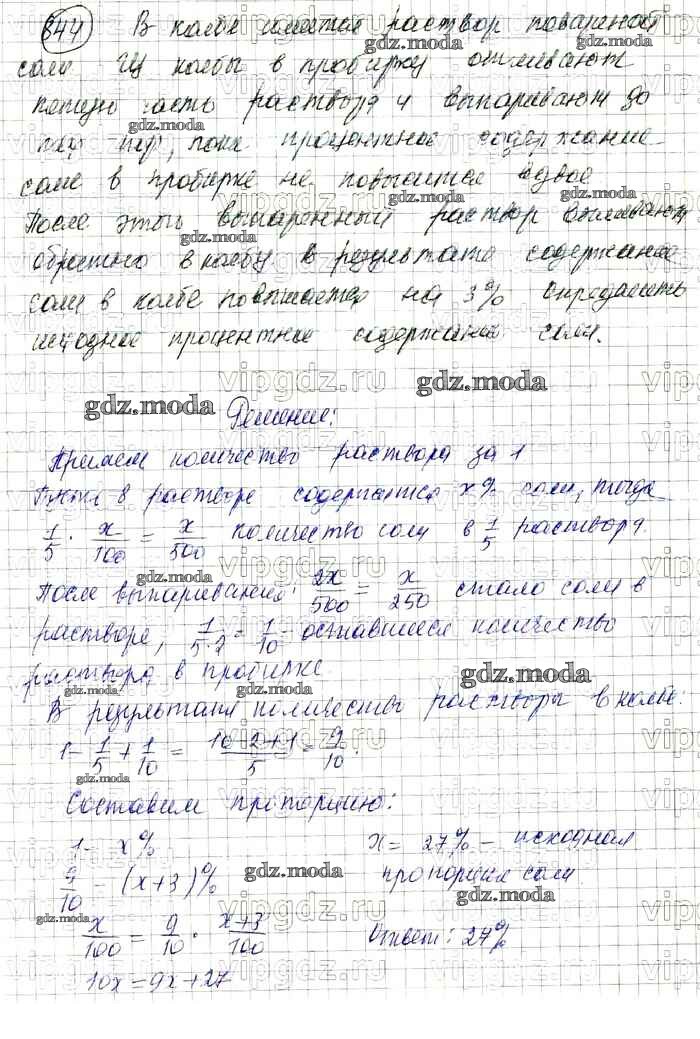 844 В колбе имеется раствор поваренной
соли. Из колбы в пробирку отливают
часть раствора и выпаривают до
тех пор, пока процентное содержание
соли в пробирке не повысится вдвое
После этого выпаренный раствор выливают
обратно в колбу. В результате содержание
соли в колбе повышается на 3% Определить
исходное процентное содержание соли.
Решение:
Примем количество раствора за 1
в растворе содержится x% соли, тогда
1/5 · x/100 = x/500 количество соли в 1/5 раствора.
После выпаривания: 2x/500 = x/250 стало соли в
растворе, 1/5·2 = 1/10 - оставшееся количество
раствора в пробирке
В результате количество раствора в колбе.
1 - 1/5 + 1/10 = 10-2+1/5 = 9/10.
Составим пропорцию:
1 - x%
9/10 - (x+3)%
x/100 = 9/10 · x+3/100
10x = 9x + 27
x = 27% - исходная
соли
Ответ: 27%
gdz.moda
vipgdz.ru